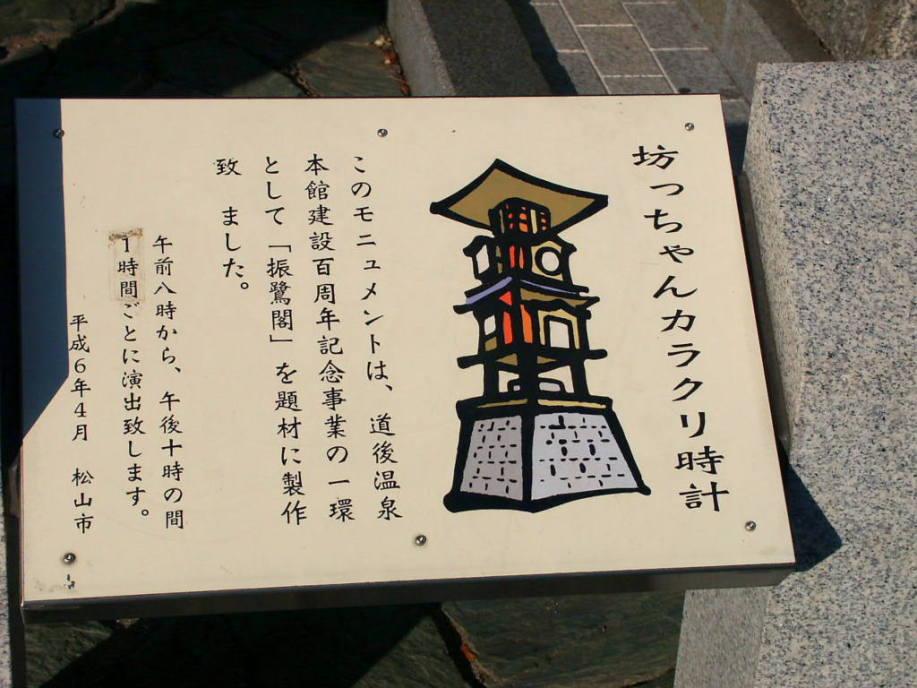 坊っちゃんカラクリ時計
このモニュメントは、道後温泉
本館建設百周年記念事業の一環
として「振鷺閣」を題材に製作
致ました。
午前八時から、午後十時の間
1時間ごとに演出致します。
平成6年4月 松山市